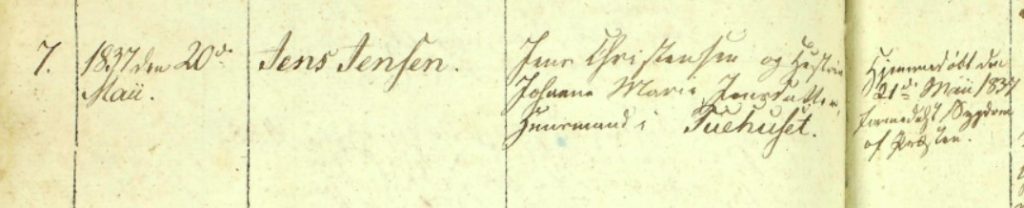 7.
1837 den 20de
Maii.
Jens Jensen.
Jens Christensen og Hustrue
Johanne Marie Jensdatter,
Huusmand i Tuehuset.
Hjemmedøbt den
21de Maii 1837
formedelst Sygdom
af Præsten.